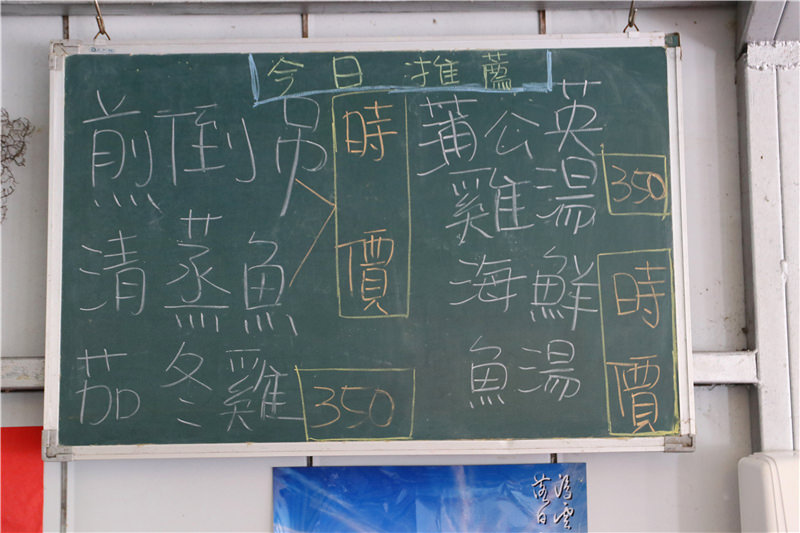 今日推薦
煎倒吊
時價
清蒸魚
茄冬雞 350
蒲公英
雞湯 350
海鮮
魚湯
時價